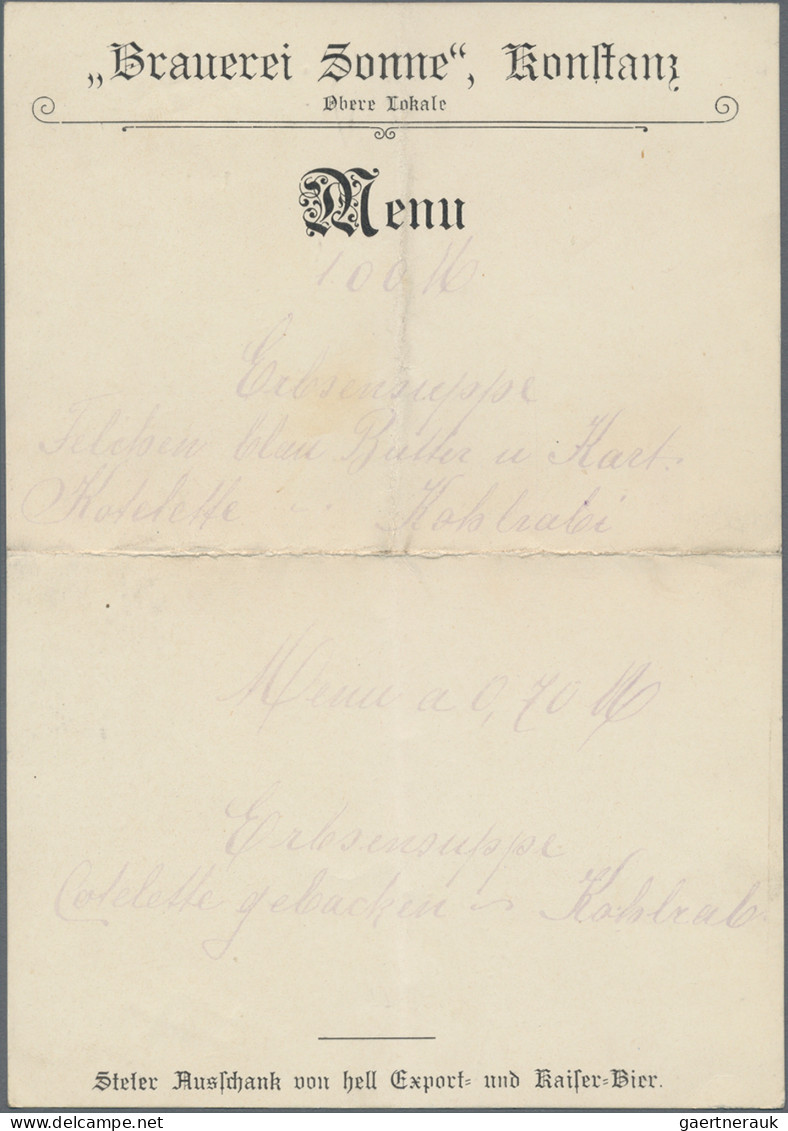 „Brauerei Sonne“, Konstanz
Obere Lokale
Menu
1.00 M
Erbsensuppe
Felchen blau Butter u Kart.
Kotelette " Kohlrabi
Menu a 0,70 M
Erbsensuppe
Cotelette gebacken Kohlrab.
Steter Ausschank von hell Export- und Kaiser-Bier.
gaertnerauk